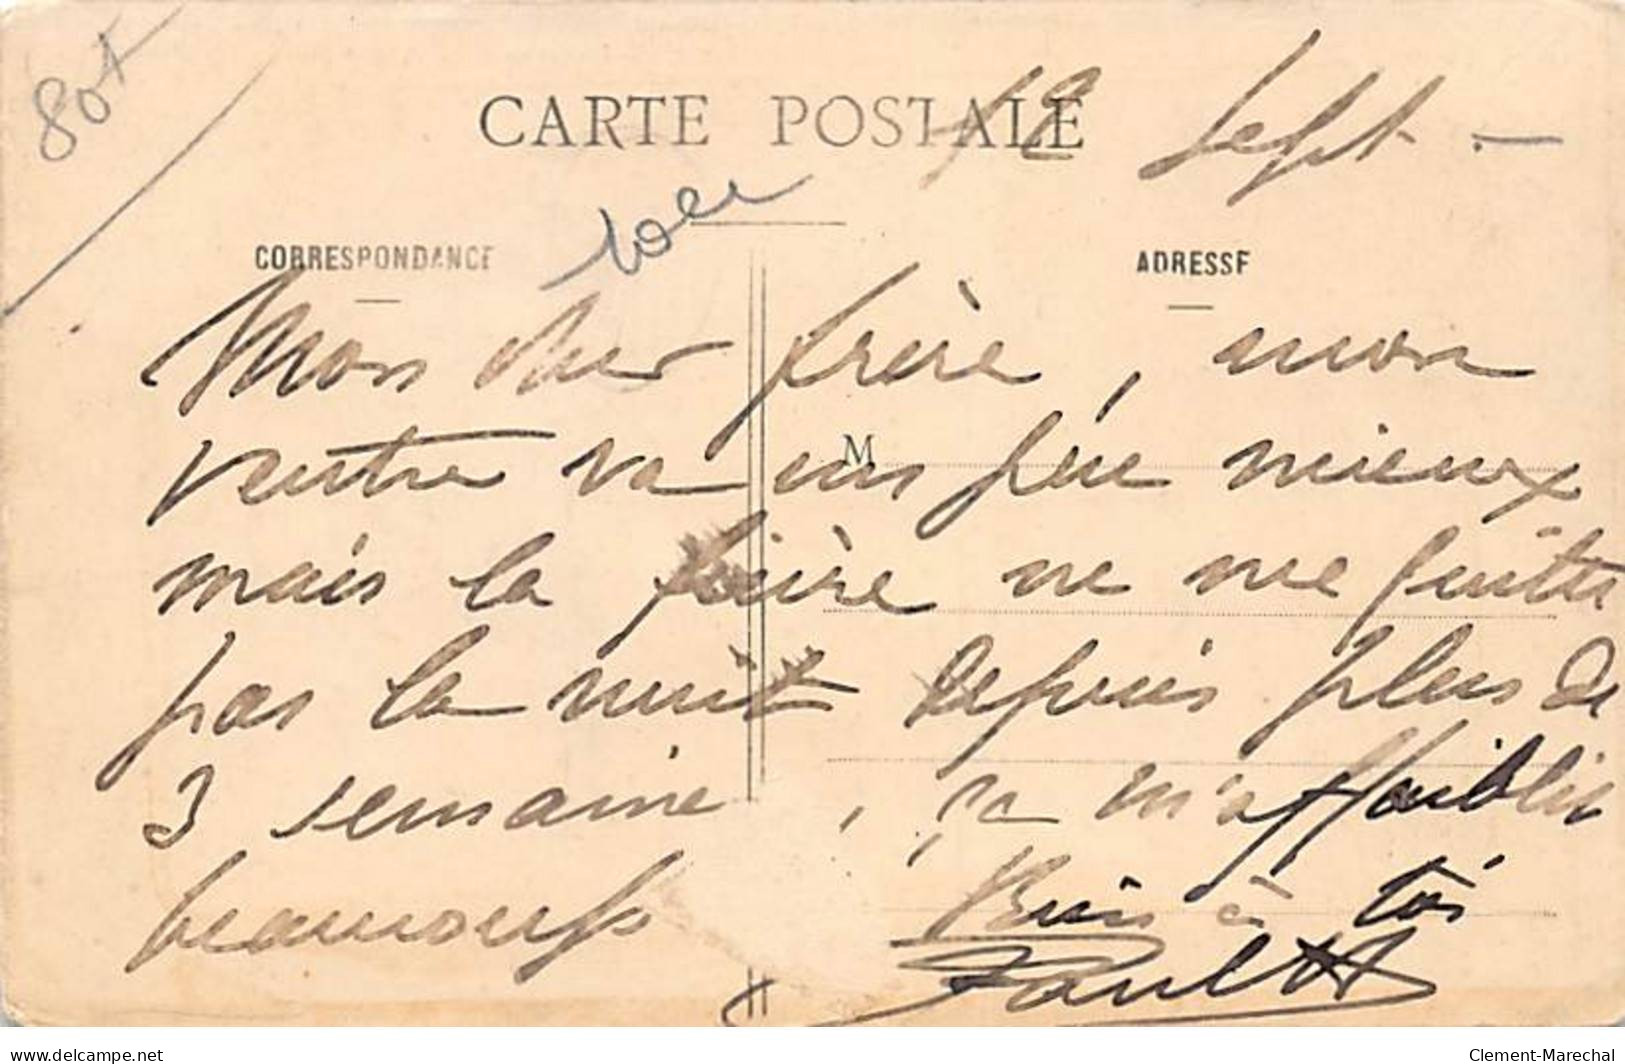 80f
CARTE POSTALE
12 Sept. —
CORRESPONDANCE
ADRESSE
Mon cher frère, mon
M
ventre va un peu mieux
mais la fièvre ne me quitte
pas la nuit depuis plus de
3 semaine, ça m'affaiblie
beaucoup Bien à toi
Paul
Clement-Marechal